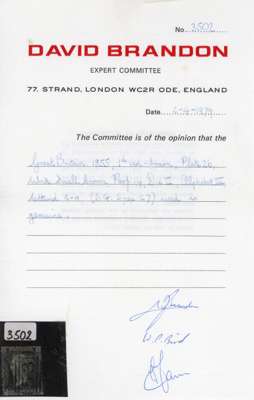 No. 3502
DAVID BRANDON
EXPERT COMMITTEE
77, STRAND, LONDON WC2R ODE, ENGLAND
Date 4-9-1979
The Committee is of the opinion that the
Great Britain 1855, 1d Plate 26,
Small Crown, Die II, Alphabet
lettered (S.G. Spec ) used is
genuine.
3502